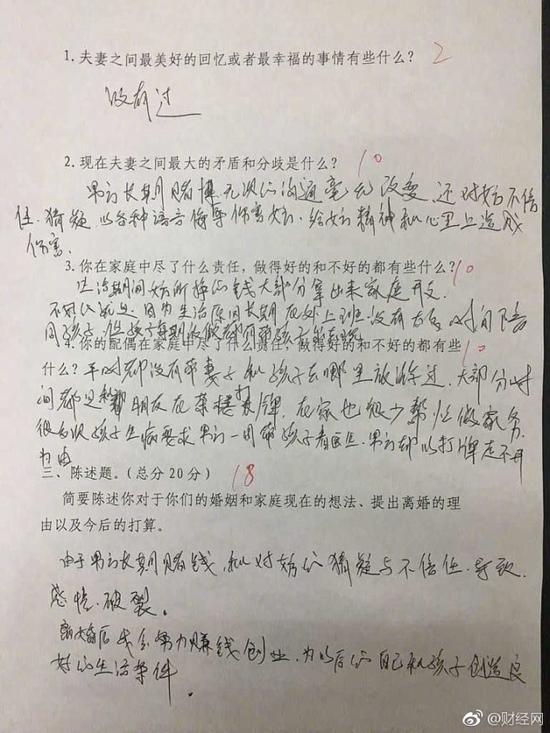 1. 夫妻之间最美好的回忆或者最幸福的事情有些什么？ 2
没有过
2. 现在夫妻之间最大的矛盾和分歧是什么？ 10
男方长期赌博无次的沟通毫无改变，还对女方不信
任，猜疑以各种语言侮辱伤害女方，给女方精神和心里上造成
伤害。
3. 你在家庭中尽了什么责任，做得好的和不好的都有些什么？ 10
生活期间女方所挣的钱大部分拿出来家庭开支
不好的就是因为生活原因长期在外上班没有太多时间下去
同孩子，但每
4. 你的配偶在家庭中尽了什么责任，做得好的和不好的都有些
什么？ 10 平时都没有带妻子和孩子去哪里放游过，大部分时
间都是和朋友在茶楼打牌，在家也很少帮忙做家务，
孩子生病要求男方一同带孩子看医生，男方却以打牌走不开
为由
三、陈述题。（总分20分） 18
简要陈述你对于你们的婚姻和家庭现在的想法、提出离婚的理
由以及今后的打算。
由于男方长期赌钱，和对女方的猜疑与不信任，导致
感情破裂。
离婚后我会努力赚钱创业，为以后的自己和孩子创造良
好的生活条件。
@财经网